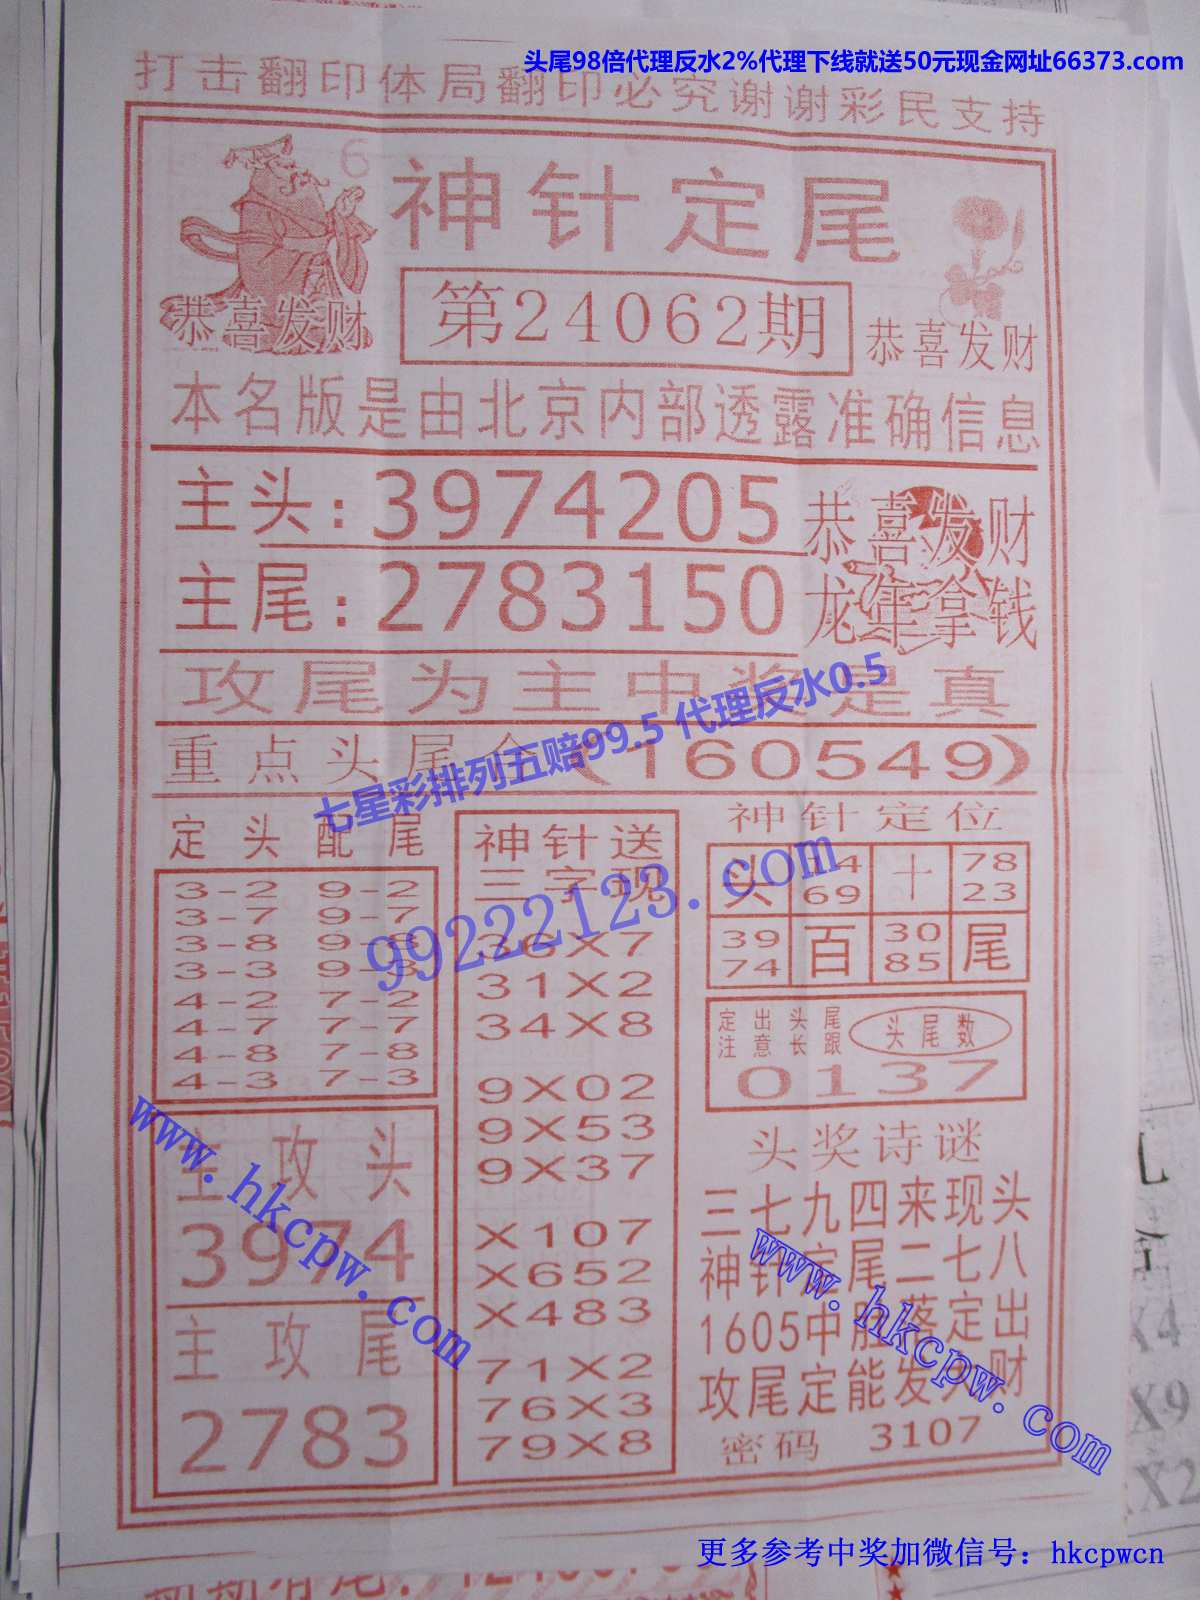 头尾98倍代理反水2%代理下线就送50元现金网址66373.com
打击翻印体局翻印必究谢谢彩民支持
6
神针定尾
第24062期
恭喜发财
恭喜发财
本名版是由北京内部透露准确信息
主头:3974205
恭喜发财
主尾:2783150
龙年拿钱
攻尾为主中奖是真
七星彩排列五赔99.5 代理反水0.5
重点头尾合(160549)
定头配尾
3-2 9-2
3-7 9-7
3-8 9-8
3-3 9-3
4-2 7-2
4-7 7-7
4-8 7-8
4-3 7-3
主攻头
3974
主攻尾
2783
神针送
三字现
99222123.com
36X7
31X2
34X8
9X02
9X53
9X37
X107
X652
X483
71X2
76X3
79X8
神针定位
头 14 十 78
69 23
39 百 30 尾
74 85
定出头尾
注意长跟
头尾数
0137
头奖诗谜
三七九四来现头
神针定尾二七八
1605中胜落定出
攻尾定能发大财
密码 3107
www.hkcpw.com
www.hkcpw.com
X4
X9
X2
更多参考中奖加微信号：hkcpwcn